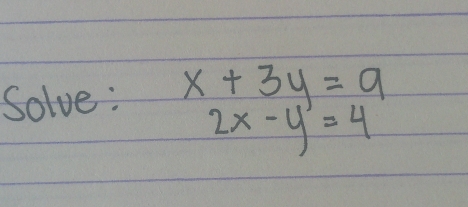 Solve: x + 3y = 9
2x - y = 4